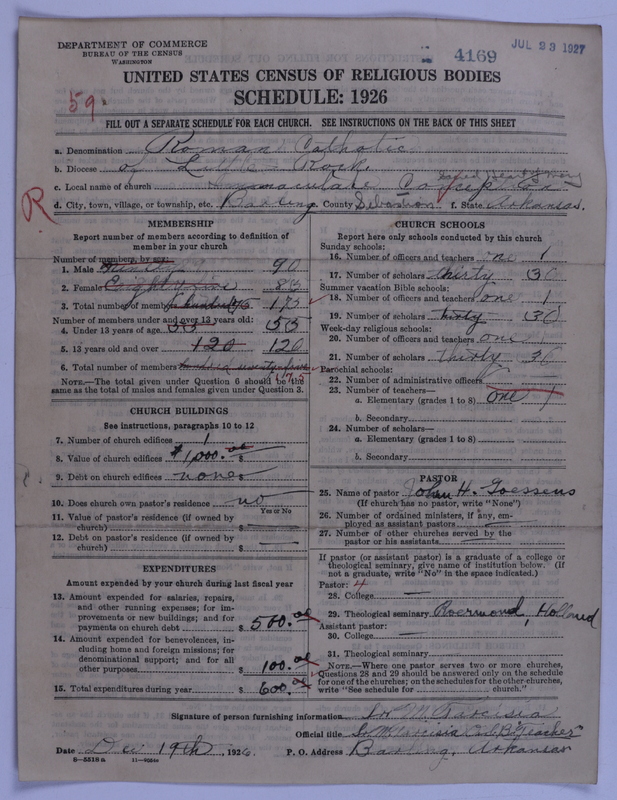 DEPARTMENT OF COMMERCE
BUREAU OF THE CENSUS
WASHINGTON
4169
JUL 23 1927
UNITED STATES CENSUS OF RELIGIOUS BODIES
SCHEDULE: 1926
59
FILL OUT A SEPARATE SCHEDULE FOR EACH CHURCH. SEE INSTRUCTIONS ON THE BACK OF THIS SHEET
a. Denomination Roman Catholic
b. Diocese of Little Rock
c. Local name of church Immaculate Conception
d. City, town, village, or township, etc. Barling County Sebastian f. State Arkansas.
R
MEMBERSHIP
Report number of members according to definition of member in your church
Number of members, by sex:
1. Male Ninety 90
2. Female Eighty five 85
3. Total number of members 175
Number of members under and over 13 years old:
4. Under 13 years of age 55 55
5. 13 years old and over 120 120
6. Total number of members 175
NOTE.—The total given under Question 6 should be the same as the total of males and females given under Question 3.
CHURCH BUILDINGS
See instructions, paragraphs 10 to 12
7. Number of church edifices 1
8. Value of church edifices $1,000.00 $
9. Debt on church edifices none $
10. Does church own pastor's residence? no
Yes or No
11. Value of pastor's residence (if owned by church) $ —
12. Debt on pastor's residence (if owned by church) $ —
EXPENDITURES
Amount expended by your church during last fiscal year
13. Amount expended for salaries, repairs, and other running expenses; for improvements or new buildings; and for payments on church debt $ 500.00
14. Amount expended for benevolences, including home and foreign missions; for denominational support; and for all other purposes $ 100.00
15. Total expenditures during year $ 600.00
CHURCH SCHOOLS
Report here only schools conducted by this church
Sunday schools:
16. Number of officers and teachers one 1
17. Number of scholars thirty 30
Summer vacation Bible schools:
18. Number of officers and teachers one 1
19. Number of scholars thirty 30
Week-day religious schools:
20. Number of officers and teachers one
21. Number of scholars thirty 30
Parochial schools:
22. Number of administrative officers
23. Number of teachers—
a. Elementary (grades 1 to 8) one 1
b. Secondary
24. Number of scholars—
a. Elementary (grades 1 to 8)
b. Secondary
PASTOR
25. Name of pastor John H. Goessens
(If church has no pastor, write "None")
26. Number of ordained ministers, if any, employed as assistant pastors —
27. Number of other churches served by the pastor or his assistants —
If pastor (or assistant pastor) is a graduate of a college or theological seminary, give name of institution below. (If not a graduate, write "No" in the space indicated.)
Pastor: 4
28. College —
29. Theological seminary Roermond, Holland
Assistant pastor:
30. College —
31. Theological seminary
NOTE.—Where one pastor serves two or more churches, Questions 28 and 29 should be answered only on the schedule for one of the churches; on the schedules for the other churches, write "See schedule for ... church."
Signature of person furnishing information Sr. M. Narcisia
Official title Sr. M. Narcisia O.S.B. Teacher
Date Dec 19th, 1926. P. O. Address Barling, Arkansas
8—5518a 11—9056a